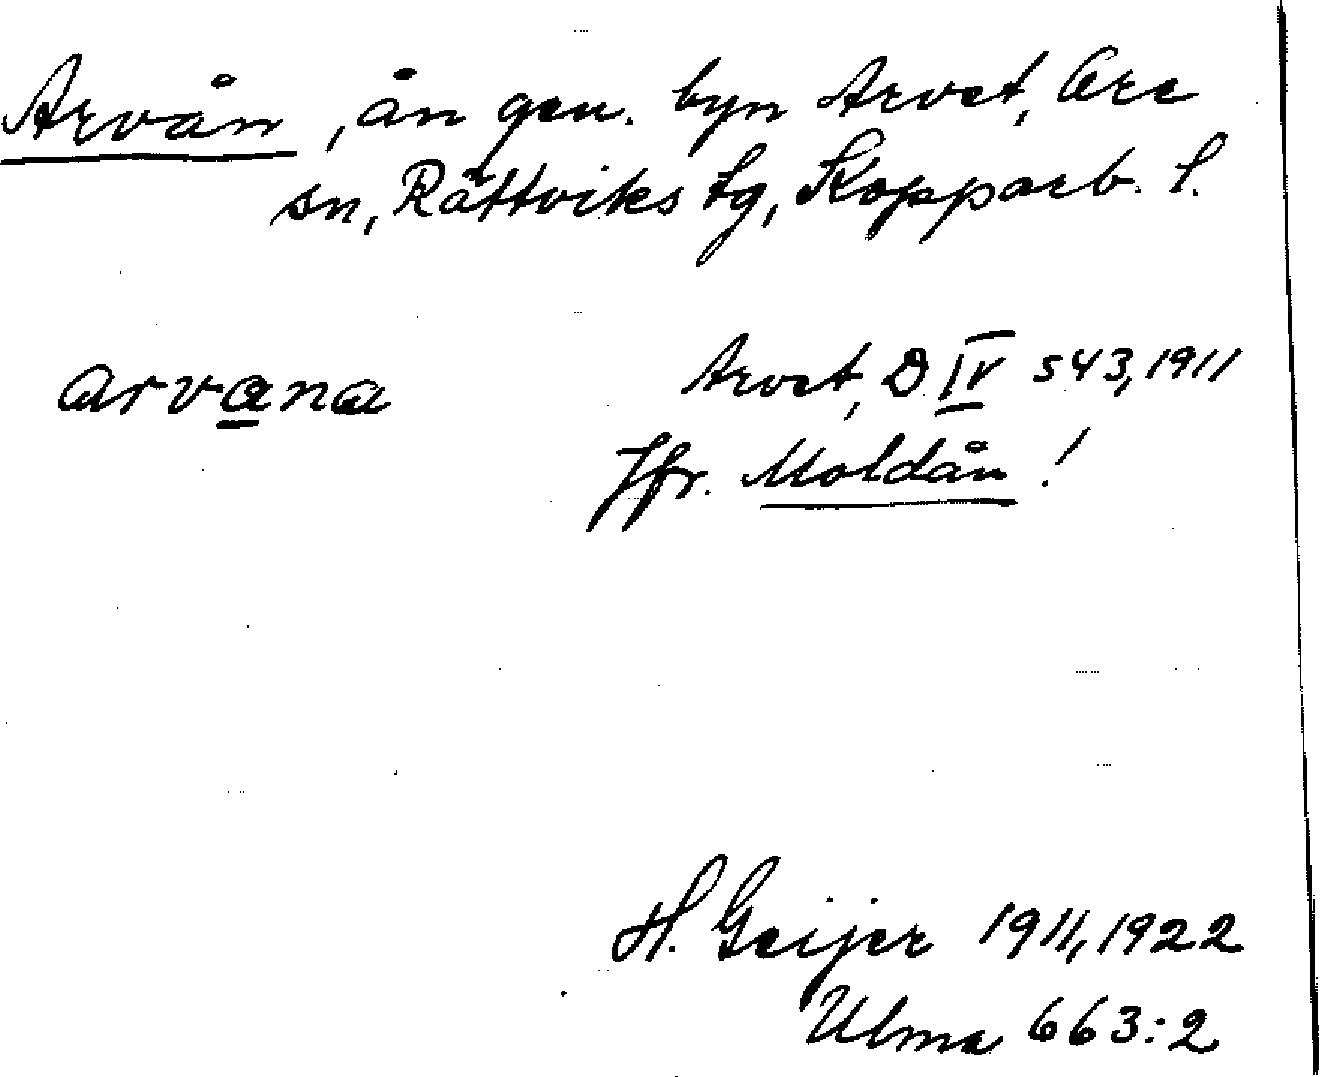 Arvån, ån gen. byn Arvet, Ore
sn, Rättviks tg, Kopparb. l.
arvana
Arvet, D IV S43, 1911
Jfr. Moldån!
H. Geijer 1911, 1922
Ulma 663:2